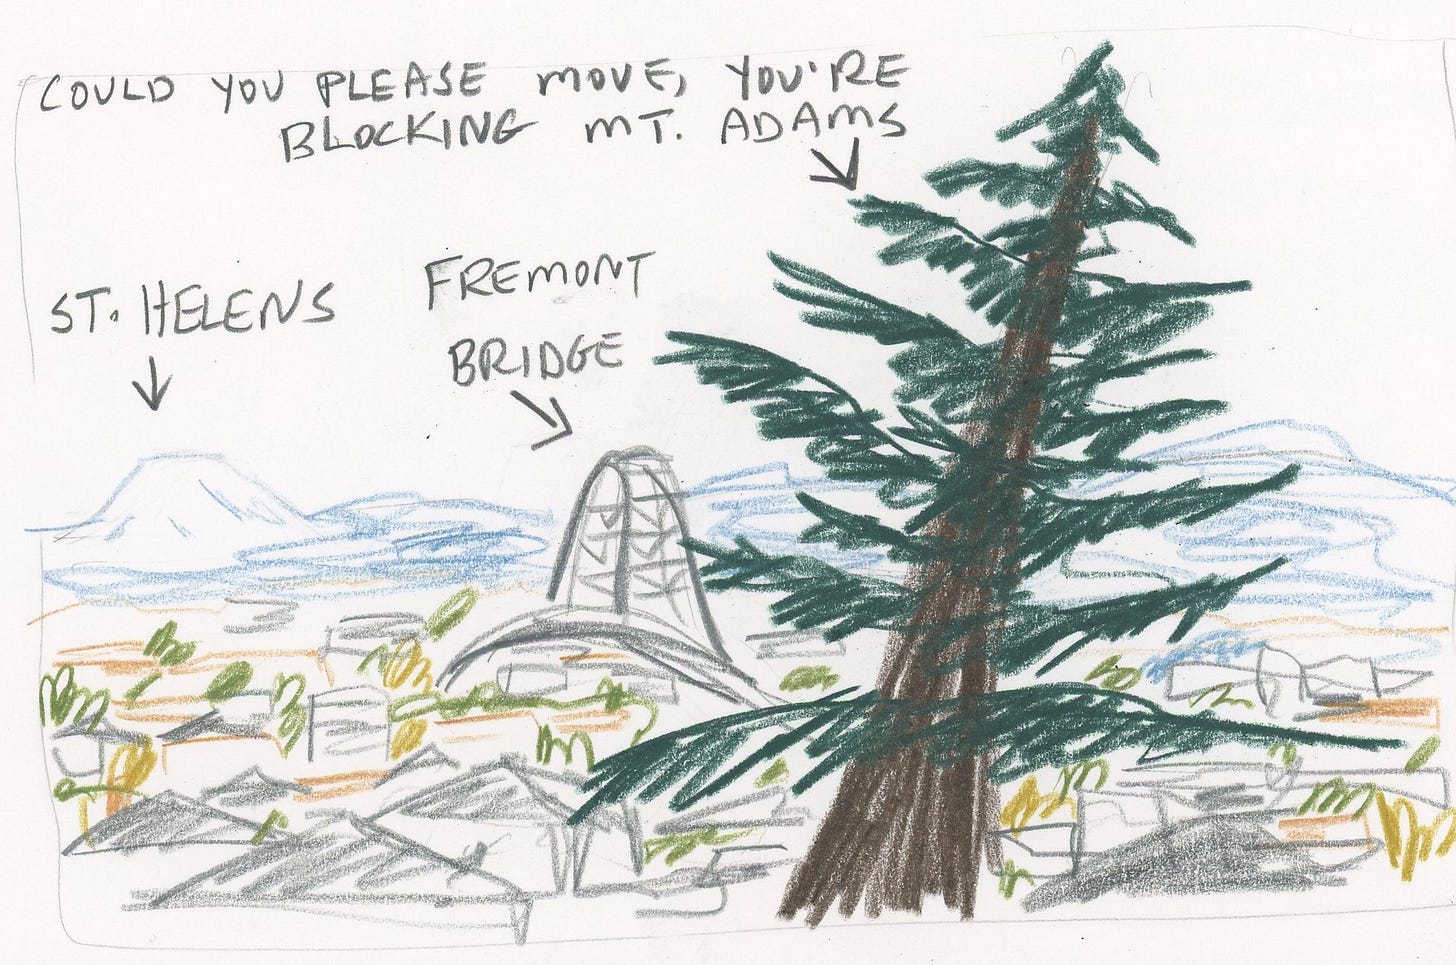 COULD YOU PLEASE MOVE, YOU'RE
BLOCKING MT. ADAMS
ST. HELENS
FREMONT
BRIDGE